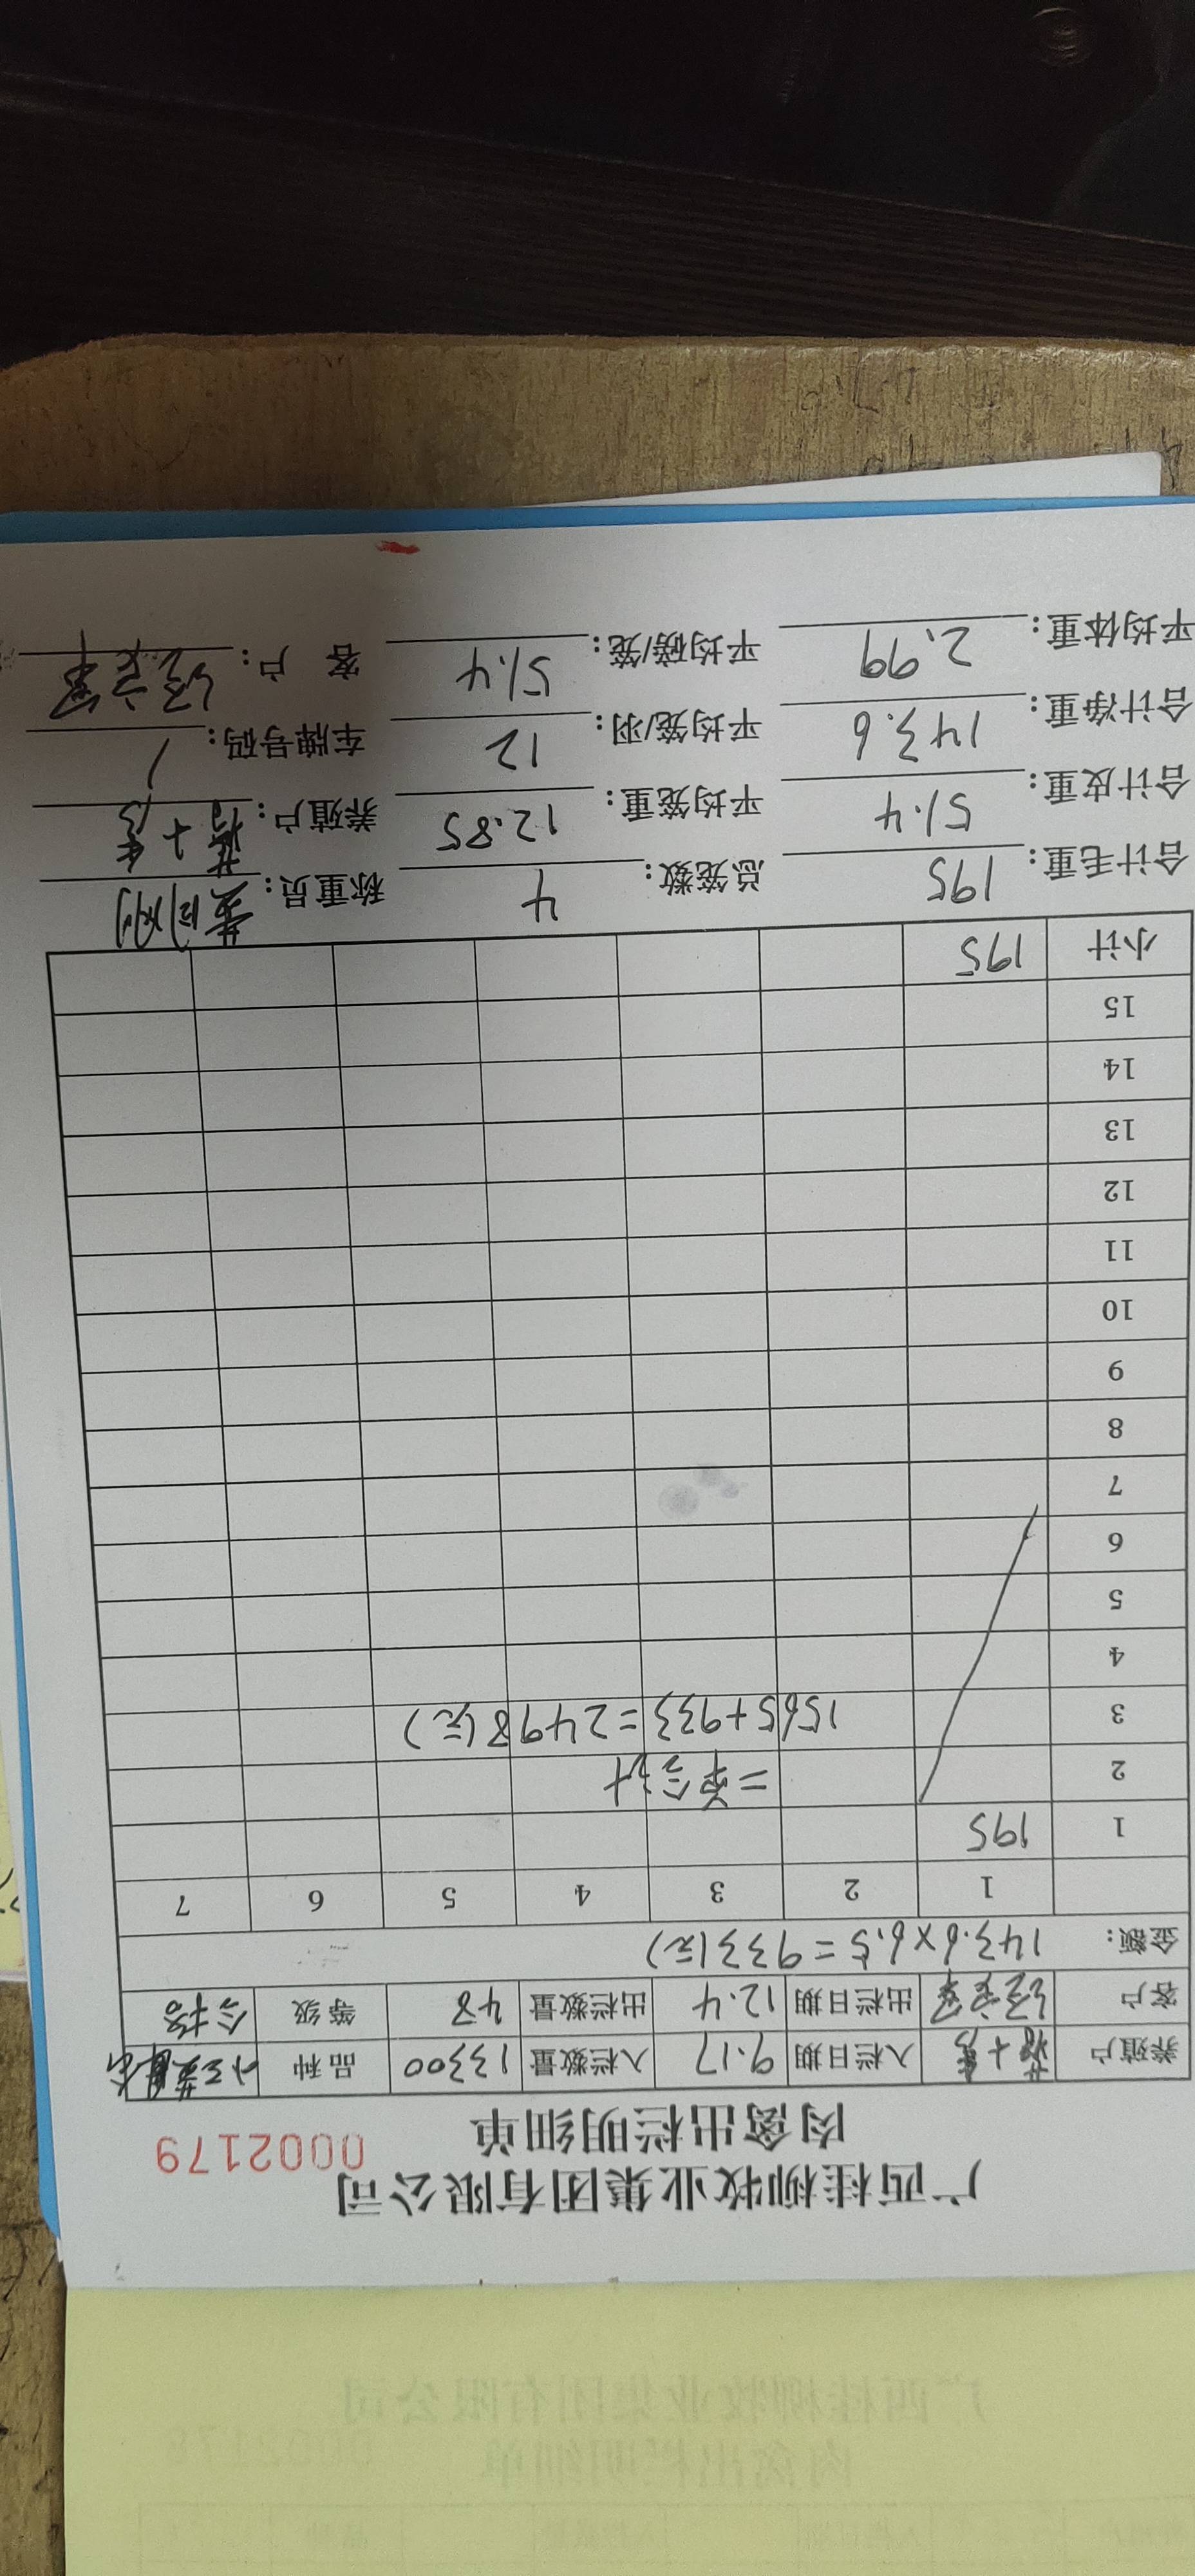 广西桂柳牧业集团有限公司
肉禽出栏明细单 0002179
养殖户 入栏日期 9.17 入栏数量 13300 品种
客户 出栏日期 12.4 出栏数量 48 等级 合格
金额: 143.6×6.5=933(元)
1 2 3 4 5 6 7
1 195
2 =单合计
3 1565+933=2498(元)
4
5
6
7
8
9
10
11
12
13
14
15
小计 195
合计毛重: 195 总笼数: 4 称重员:
合计皮重: 51.4 平均笼重: 12.85 养殖户:
合计净重: 143.6 平均笼/羽: 12 车牌号码: /
平均体重: 2.99 平均磅/笼: 51.4 客户:
广西桂柳牧业集团有限公司
肉禽出栏明细单 0002178